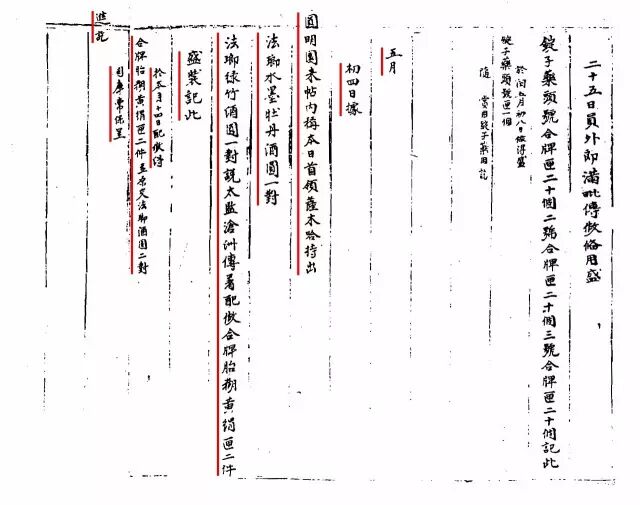 二十五日員外郎滿毗傳做備用盛
錠子藥頭號合牌匣二十個二號合牌匣二十個三號合牌匣二十個記此
於閏五月初八日做得盛
錠子藥頭號匣一個
隨 賞用錠子藥用訖
五月
初四日據
圓明園來帖內稱本日首領薩木哈持出
法瑯水墨牡丹酒圓一對
法瑯綠竹酒圓一對說太監滄洲傳著配做合牌胎糊黃絹匣二件
盛裝記此
於本月十四日配做得
合牌胎糊黃絹匣二件 並原交法瑯酒圓二對
司庫常保呈
進訖